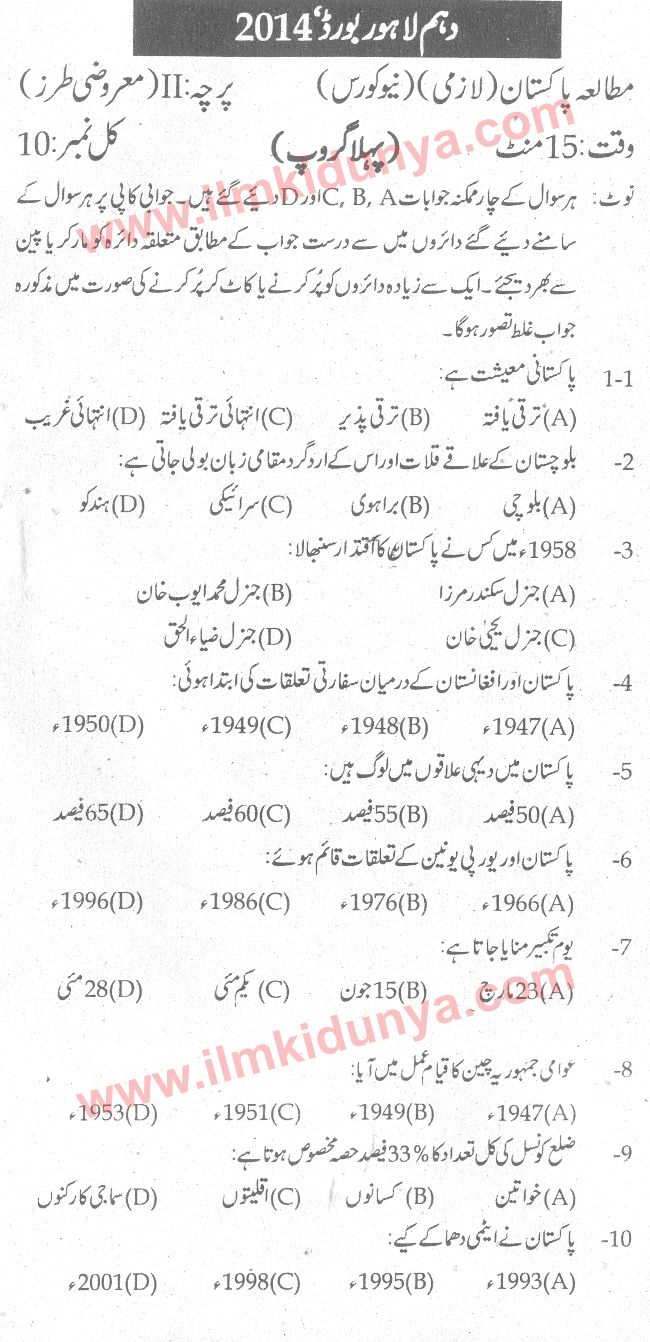 دہم لاہور بورڈ، 2014
مطالعہ پاکستان (لازمی) (نیو کورس) پرچہ: II (معروضی طرز)
وقت: 15 منٹ (پہلا گروپ) کل نمبر: 10
نوٹ: ہر سوال کے چار ممکنہ جوابات C, B, A اور D دیئے گئے ہیں۔ جوابی کاپی پر ہر سوال کے
سامنے دیئے گئے دائروں میں سے درست جواب کے مطابق متعلقہ دائرہ کو مارکر یا پین
سے بھر دیجئے۔ ایک سے زیادہ دائروں کو پُر کرنے یا کاٹ کر پُر کرنے کی صورت میں مذکورہ
جواب غلط تصور ہوگا۔
1-1 پاکستانی معیشت ہے:
(A) ترقی یافتہ (B) ترقی پذیر (C) انتہائی ترقی یافتہ (D) انتہائی غریب
2- بلوچستان کے علاقے قلات اور اس کے اردگرد مقامی زبان بولی جاتی ہے:
(A) بلوچی (B) براہوی (C) سرائیکی (D) ہندکو
3- 1958ء میں کس نے پاکستان کا اقتدار سنبھالا:
(A) جنرل سکندر مرزا (B) جنرل محمد ایوب خان
(C) جنرل یحییٰ خان (D) جنرل ضیاء الحق
4- پاکستان اور افغانستان کے درمیان سفارتی تعلقات کی ابتدا ہوئی:
(A) 1947ء (B) 1948ء (C) 1949ء (D) 1950ء
5- پاکستان میں دیہی علاقوں میں لوگ ہیں:
(A) 50 فیصد (B) 55 فیصد (C) 60 فیصد (D) 65 فیصد
6- پاکستان اور یورپی یونین کے تعلقات قائم ہوئے:
(A) 1966ء (B) 1976ء (C) 1986ء (D) 1996ء
7- یوم تکبیر منایا جاتا ہے:
(A) 23 مارچ (B) 15 جون (C) یکم مئی (D) 28 مئی
8- عوامی جمہوریہ چین کا قیام عمل میں آیا:
(A) 1947ء (B) 1949ء (C) 1951ء (D) 1953ء
9- ضلع کونسل کی کل تعداد کا 33% فیصد حصہ مخصوص ہوتا ہے:
(A) خواتین (B) کسانوں (C) اقلیتوں (D) سماجی کارکنوں
10- پاکستان نے ایٹمی دھماکے کیے:
(A) 1993ء (B) 1995ء (C) 1998ء (D) 2001ء
www.ilmkidunya.com
www.ilmkidunya.com